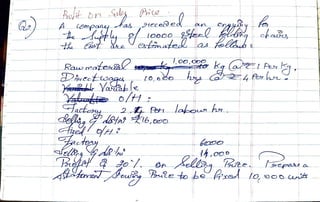 Profit on Sales Price
Q) A company has received an enquiry for
the supply of 10000 steel folding chairs
the cost are estimated as follows:
Raw material 1,00,000 Kg @ ₹1 Per Kg.
Direct wages 10,000 hrs @ ₹ 4 Per hr.
Variable
O/H:
Factory 2. Per labour hr.
Selling & dist/n ₹16,000
Fixed O/H:
Factory 6000
Selling & dist/n 14,000
Profit @ 20% on Selling Price. Prepare a
Statement showing Price to be fixed 10,000 units